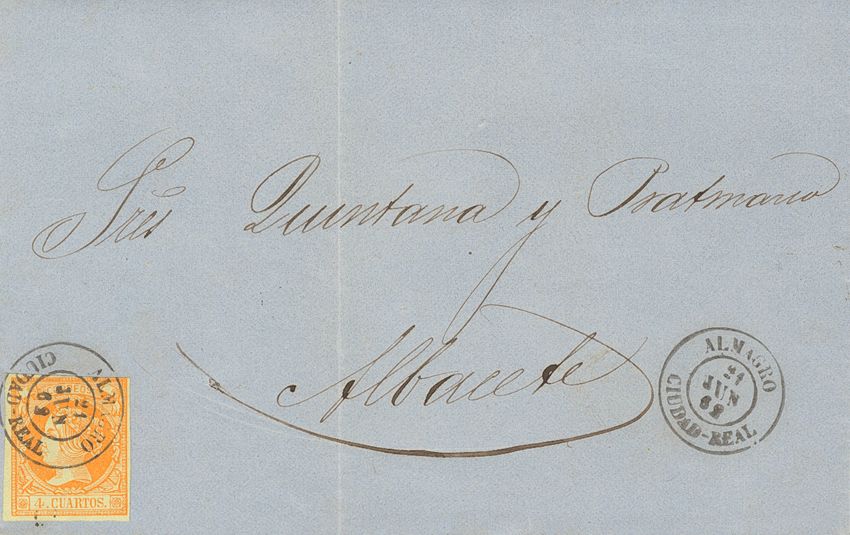 Sres Quintana y Pratmarso
Albacete
ALMAGRO
21
JUN
62
CIUDAD-REAL
ALMAGRO
21
JUN
62
CIUDAD-REAL
4. CUARTOS.